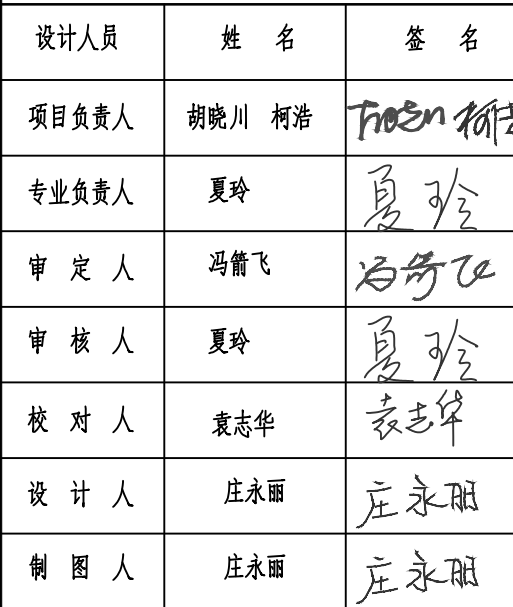 设计人员 姓 名 签 名
项目负责人 胡晓川 柯浩 胡晓川 柯浩
专业负责人 夏玲 夏玲
审 定 人 冯箭飞 冯箭飞
审 核 人 夏玲 夏玲
校 对 人 袁志华 袁志华
设 计 人 庄永丽 庄永丽
制 图 人 庄永丽 庄永丽